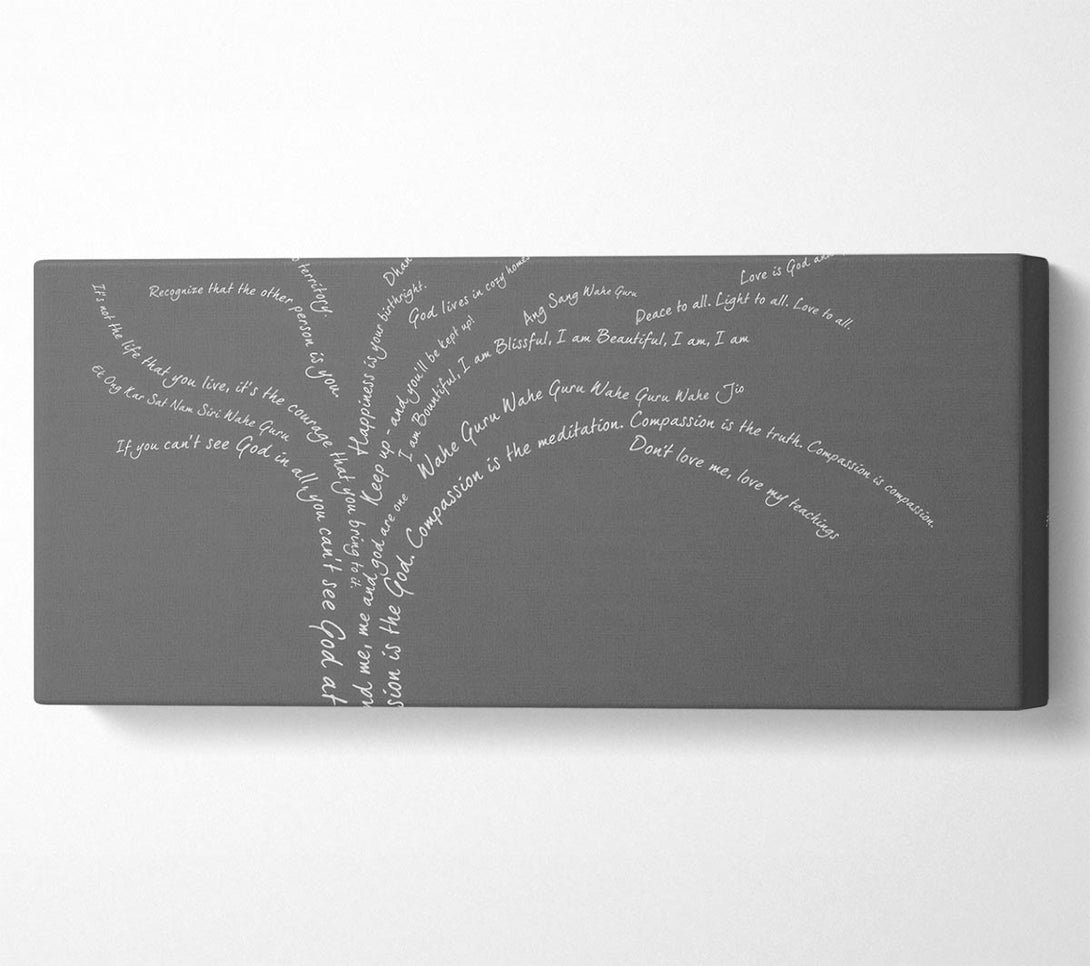 It's not the life that you live, it's the courage that you bring to it.
Recognize that the other person is you.
territory.
Happiness is your birthright.
God lives in cozy homes
Keep up - and you'll be kept up!
I am Bountiful, I am Blissful, I am Beautiful, I am, I am
Ang Sang Wahe Guru
Peace to all. Light to all. Love to all.
Love is God
Ek Ong Kar Sat Nam Siri Wahe Guru
If you can't see God in all, you can't see God at
me, me and god are one
Wahe Guru Wahe Guru Wahe Guru Wahe Jio
sion is the God. Compassion is the meditation. Compassion is the truth. Compassion is compassion.
Don't love me, love my teachings